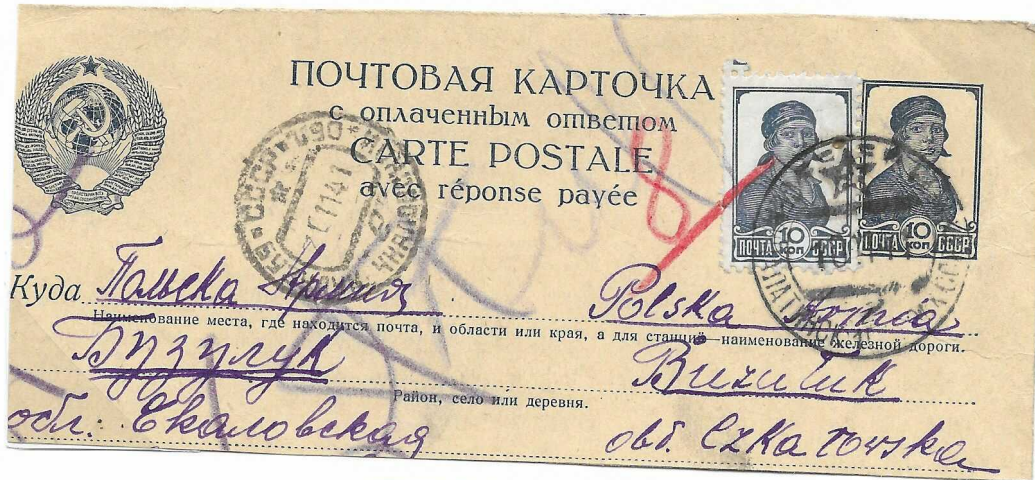 ПОЧТОВАЯ КАРТОЧКА
с оплаченным ответом
CARTE POSTALE
avec réponse payée
ПОЧТА 10 КОП СССР
ПОЧТА 10 КОП СССР
Куда Польска Армия Polska Armia
Наименование места, где находится почта, и области или края, а для станций—наименование железной дороги.
Бузулук Buzuluk
Район, село или деревня.
обл. Чкаловская obł. Czkałowska